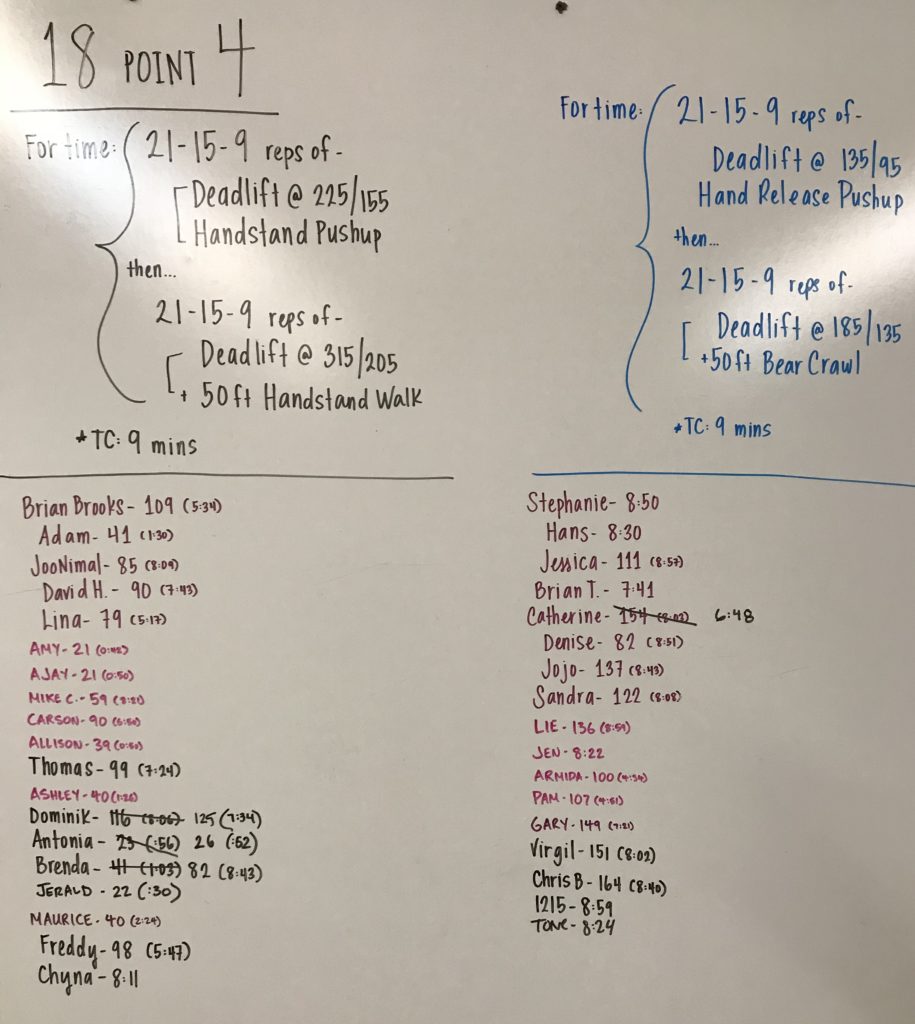 18 POINT 4
For time: 21-15-9 reps of-
Deadlift @ 225/155
Handstand Pushup
then...
21-15-9 reps of-
Deadlift @ 315/205
+ 50ft Handstand Walk
*TC: 9 mins
Brian Brooks- 109 (5:34)
Adam- 41 (1:30)
JooNimal- 85 (8:09)
David H.- 90 (7:43)
Lina- 79 (5:17)
AMY- 21 (0:42)
AJAY- 21 (0:50)
MIKE C.- 59
CARSON- 90
ALLISON- 39 (0:50)
Thomas- 99 (7:24)
ASHLEY- 40
Dominik- 116 (8:06) 125 (7:34)
Antonia- 23 (:56) 26 (:52)
Brenda- 41 (1:03) 82 (8:43)
JERALD - 22 (:30)
MAURICE- 40 (2:24)
Freddy- 98 (5:47)
Chyna- 8:11
For time: 21-15-9 reps of-
Deadlift @ 135/95
Hand Release Pushup
then...
21-15-9 reps of-
Deadlift @ 185/135
+50ft Bear Crawl
*TC: 9 mins
Stephanie- 8:50
Hans- 8:30
Jessica- 111 (8:57)
Brian T.- 7:41
Catherine- 154 (8:02) 6:48
Denise- 82 (8:51)
Jojo- 137 (8:43)
Sandra- 122 (8:08)
LIE- 136 (8:59)
JEN- 8:22
ARMIDA- 100 (4:34)
PAM- 107 (4:51)
GARY- 149 (7:21)
Virgil- 151 (8:02)
Chris B- 164 (8:40)
1215- 8:59
TONE- 8:24